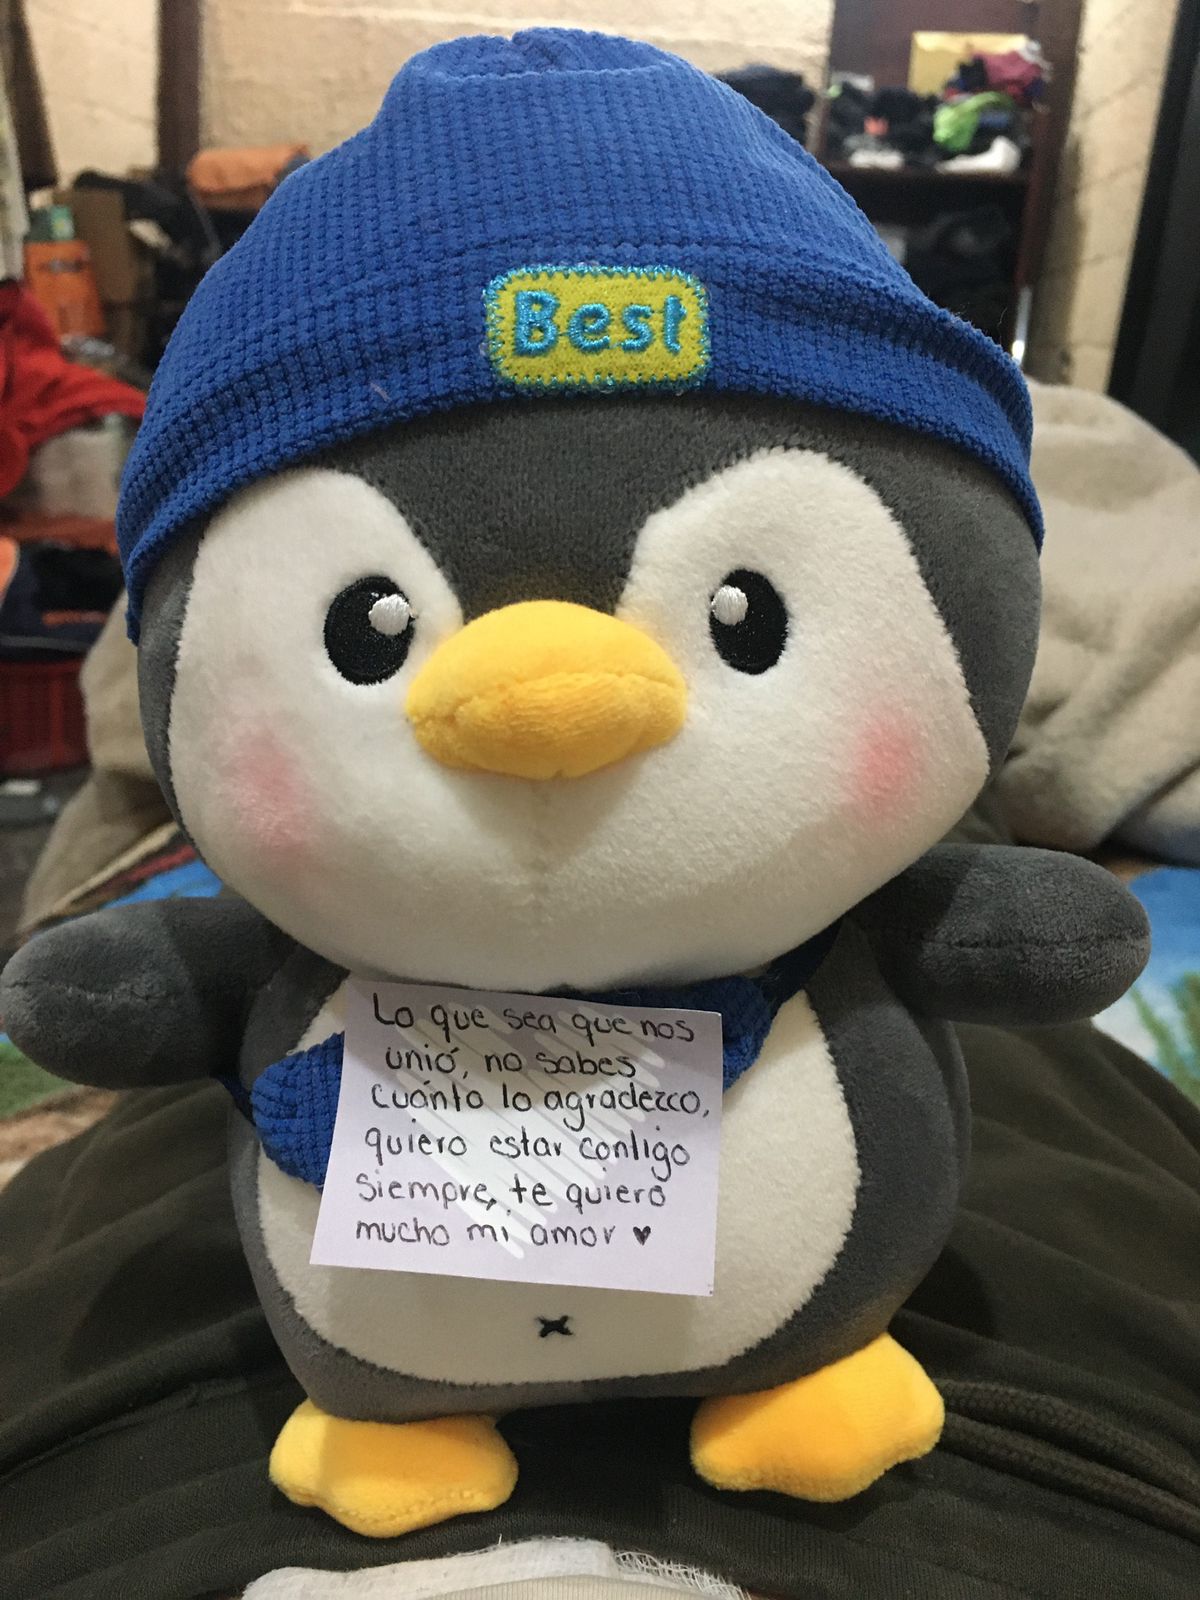 Best
Lo que sea que nos
unió, no sabes
cuánto lo agradezco,
quiero estar contigo
siempre, te quiero
mucho mi amor ♥